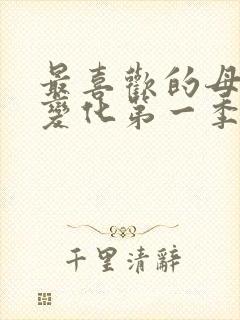 最喜歡的母
變化第一季
千里清辭